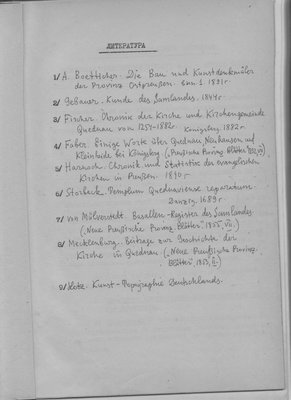 ЛИТЕРАТУРА
1/ A. Boetticher. Die Bau und Kunstdenkmäler
der Provinz Ostpreußen. 1891г.
2/ Gebauer. Kunde des Samlandes. 1844г.
3/ Fischer. Chronik der Kirche und Kirchengemeinde
Quednau von 1254-1882г. Königsberg 1882г.
4/ Faber. Einige Worte über Quednau, Neuhausen und
Kleinheide bei Königsberg („Preußische Provinz. Blätter"
5/ Harnoch. Chronik und Statistik der evangelischen
Kirchen in Preußen. 1890г.
6/ Storbeck. Templum Quednaviense reparatum.
Danzig. 1689г
7/ von Mülverstedt. Vasallen-Register des Samlandes.
(„Neue Preußische Provinz. Blätter" 1855, VII.)
8/ Mecklenburg. Beiträge zur Geschichte der
Kirche in Quednau („Neue Preußische Provinz.
Blätter" 1853, II.)
9/ Lotz. Kunst-Topographie Deutschlands.